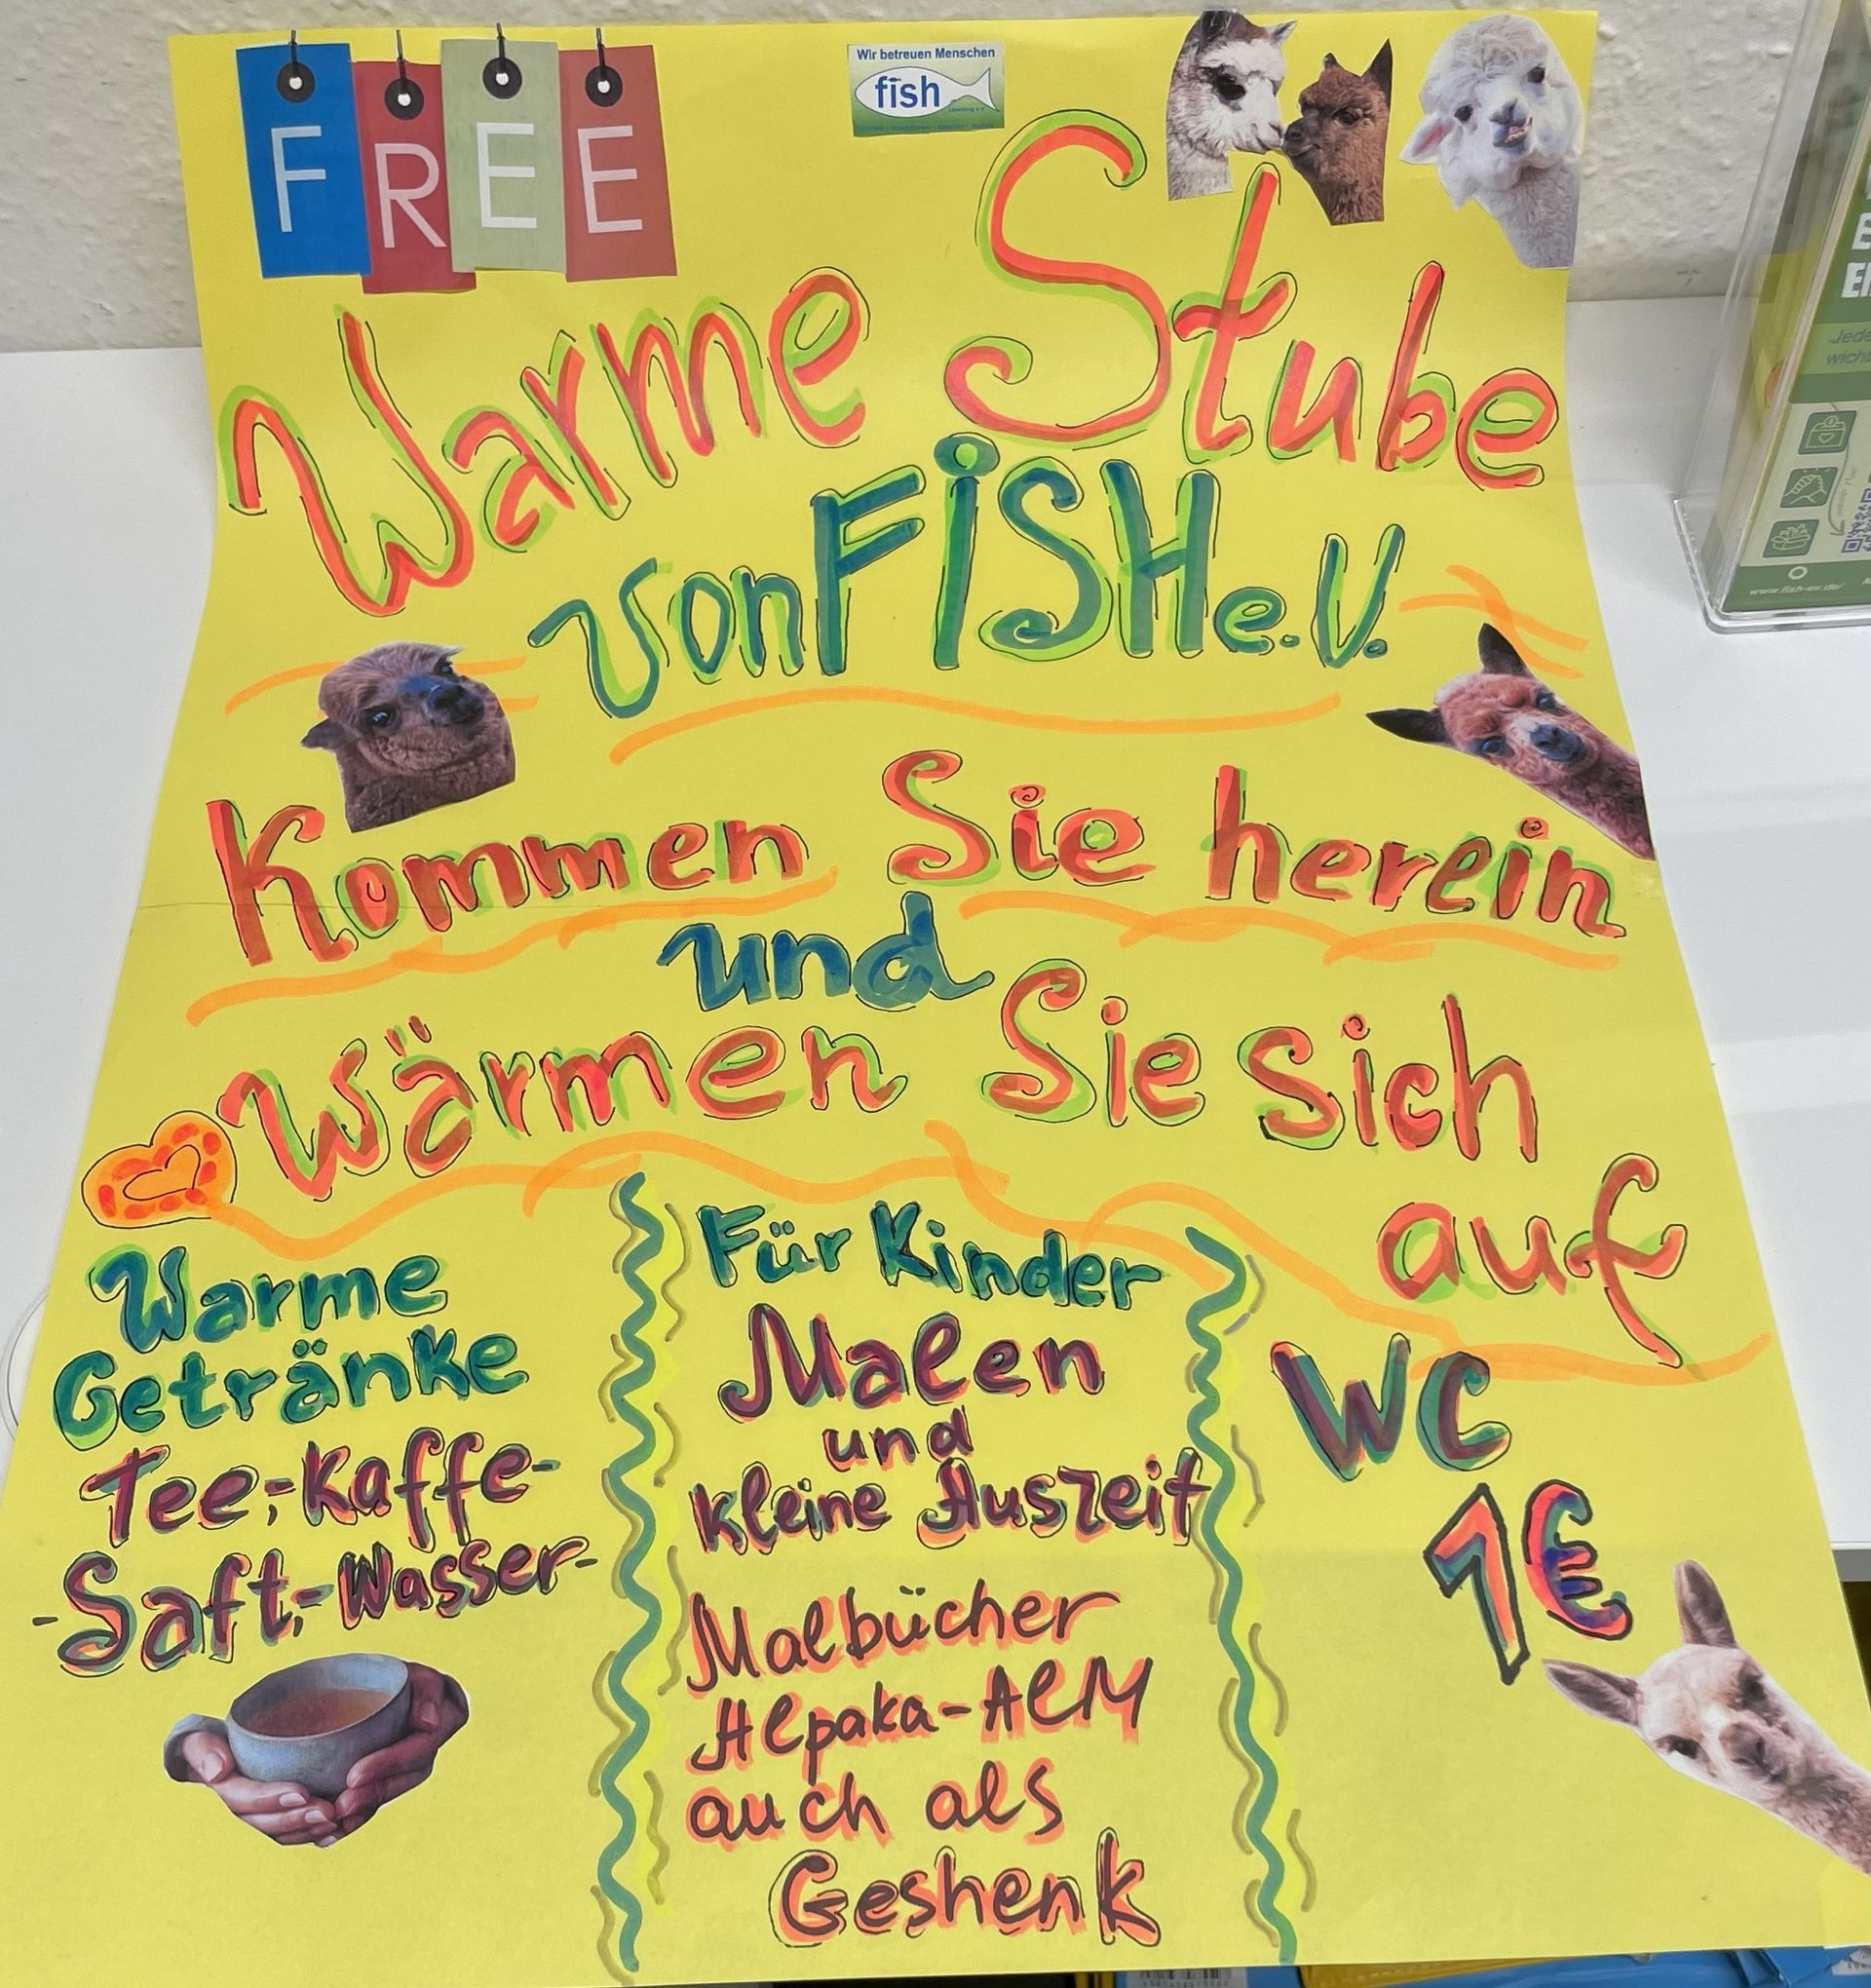 FREE
Wir betreuen Menschen
fish
Warme Stube
von FISH e.V.
Kommen Sie herein
und
Wärmen Sie sich
auf
Warme
Getränke
Tee,-Kaffe-
-Saft,-Wasser-
Für Kinder
Malen
und
kleine Auszeit
Malbücher
Alpaka-AlM
auch als
Geshenk
WC
1€
Jede
www.fish-ev.de/